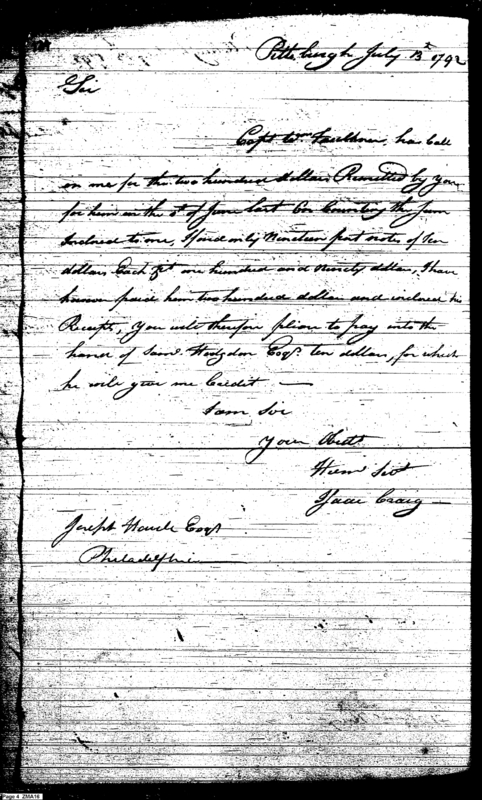 Pittsburgh July 13th 1792
Sir
Capt Wm Faulkner, has Call
on me for the two hundred dollars Remitted by you
for him on the of June last On Counting the Sum
Inclosed to me, I found only Nineteen post notes of Ten
dollars Each is one hundred and Ninety dollars, I have
however paid him two hundred dollars and inclosed his
Receipt, you will therefore please to pay into the
hands of Saml Hodgdon Esqr ten dollars, for which
he will give me Credit —
I am Sir
your Obedt
Hum Servt
Isaac Craig
Joseph Howell Esqr
Philadelphia
Page 4 ZMA16